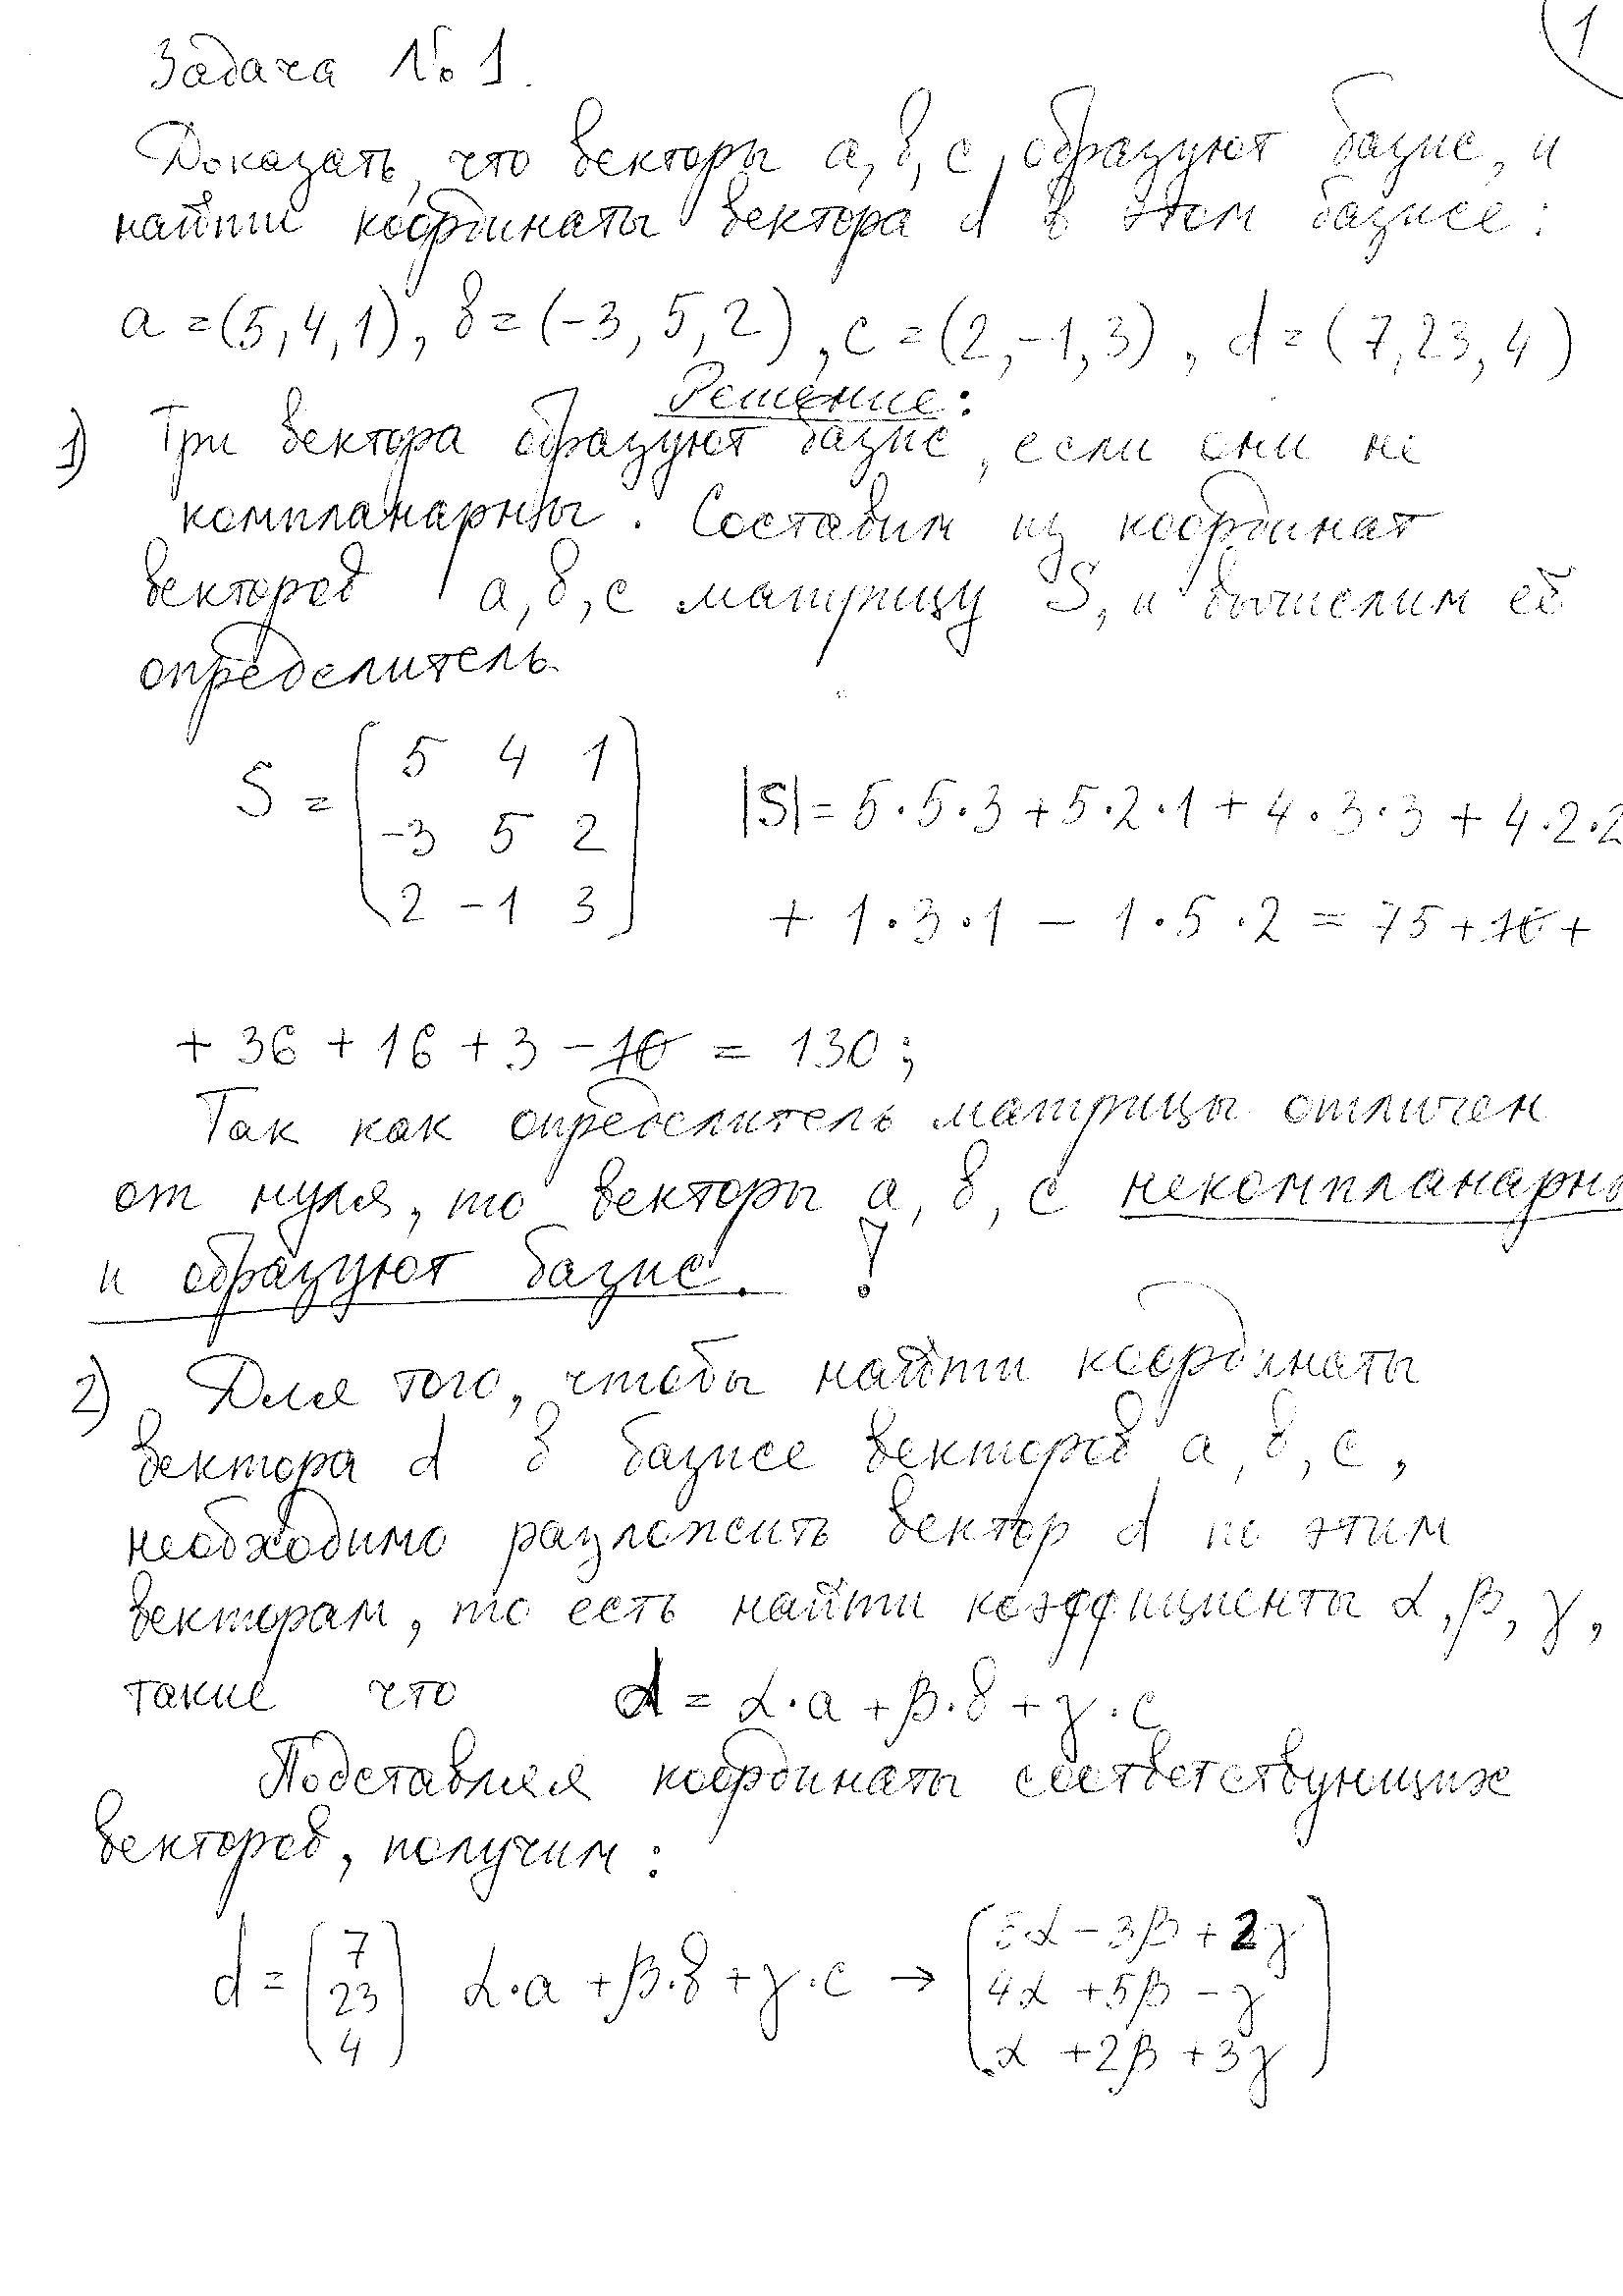 1
Задача №1.
Доказать, что векторы a, b, c, образуют базис, и
найти координаты вектора d в этом базисе:
a = (5, 4, 1), b = (-3, 5, 2), c = (2, -1, 3), d = (7, 23, 4)
Решение:
1) Три вектора образуют базис, если они не
компланарны. Составим из координат
векторов a, b, c матрицу S, и вычислим её
определитель.
S = ( 5 4 1
-3 5 2
2 -1 3 )
|S| = 5·5·3 + 5·2·1 + 4·3·3 + 4·2·2
+ 1·3·1 - 1·5·2 = 75 + 10 +
+ 36 + 16 + 3 - 10 = 130;
Так как определитель матрицы отличен
от нуля, то векторы a, b, c некомпланарны
и образуют базис. !
2) Для того, чтобы найти координаты
вектора d в базисе векторов a, b, c,
необходимо разложить вектор d по этим
векторам, то есть найти коэффициенты α, β, γ,
такие что d = α·a + β·b + γ·c
Подставляя координаты соответствующих
векторов, получим:
d = ( 7
23
4 )
α·a + β·b + γ·c → ( 5α - 3β + 2γ
4α + 5β - γ
α + 2β + 3γ )